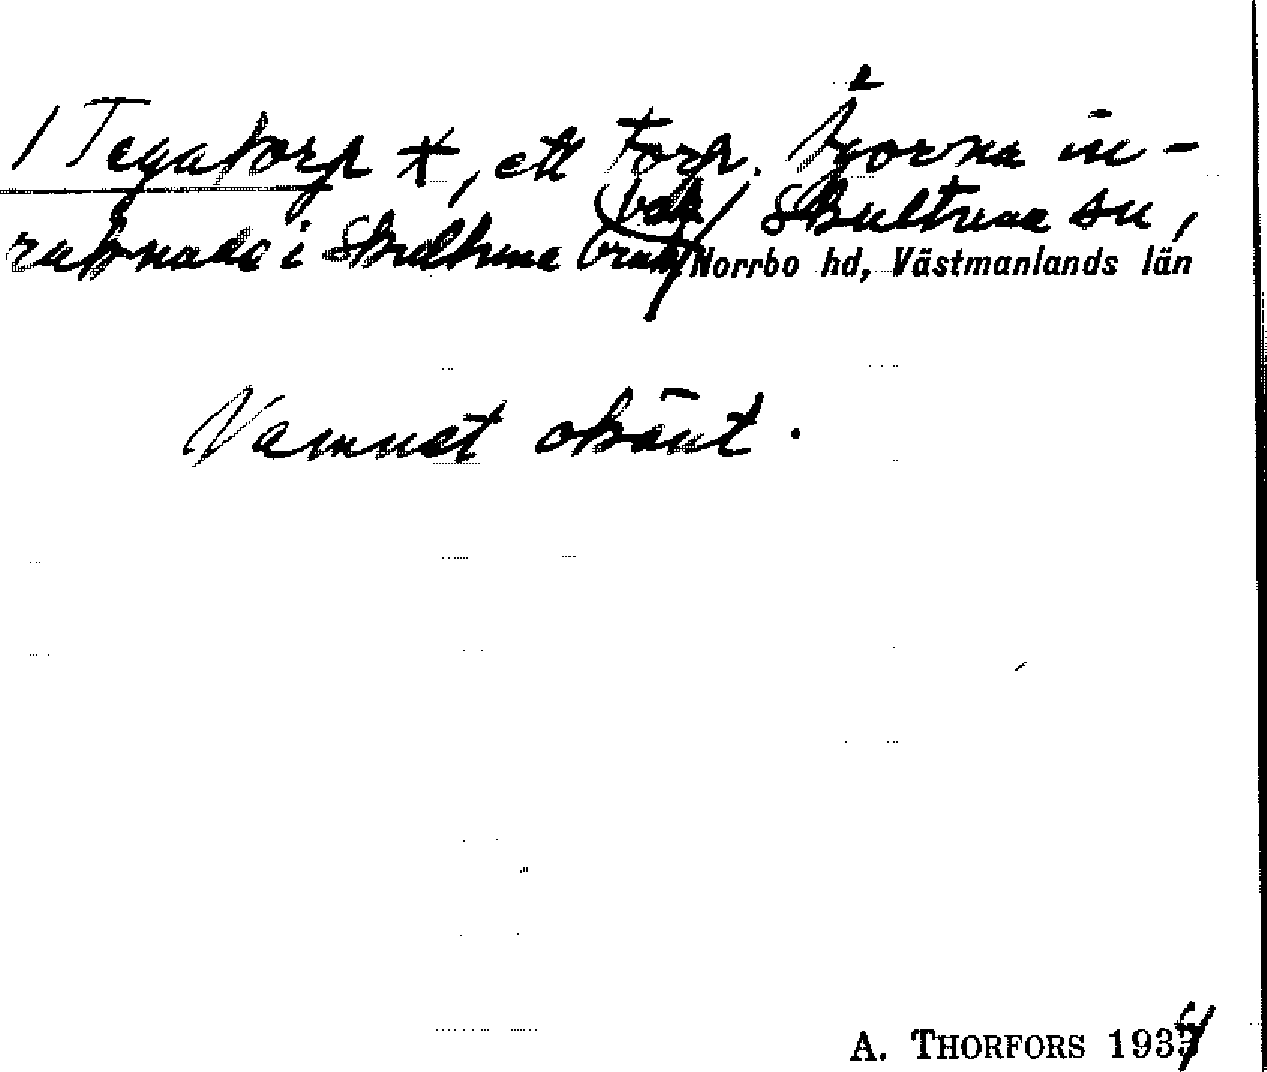 / Tegatorp +, ett torp. Ägorna in-
räknade i Skultuna bruk
Skultuna sn,
Norrbo hd, Västmanlands län
Namnet okänt.
A. THORFORS 1934